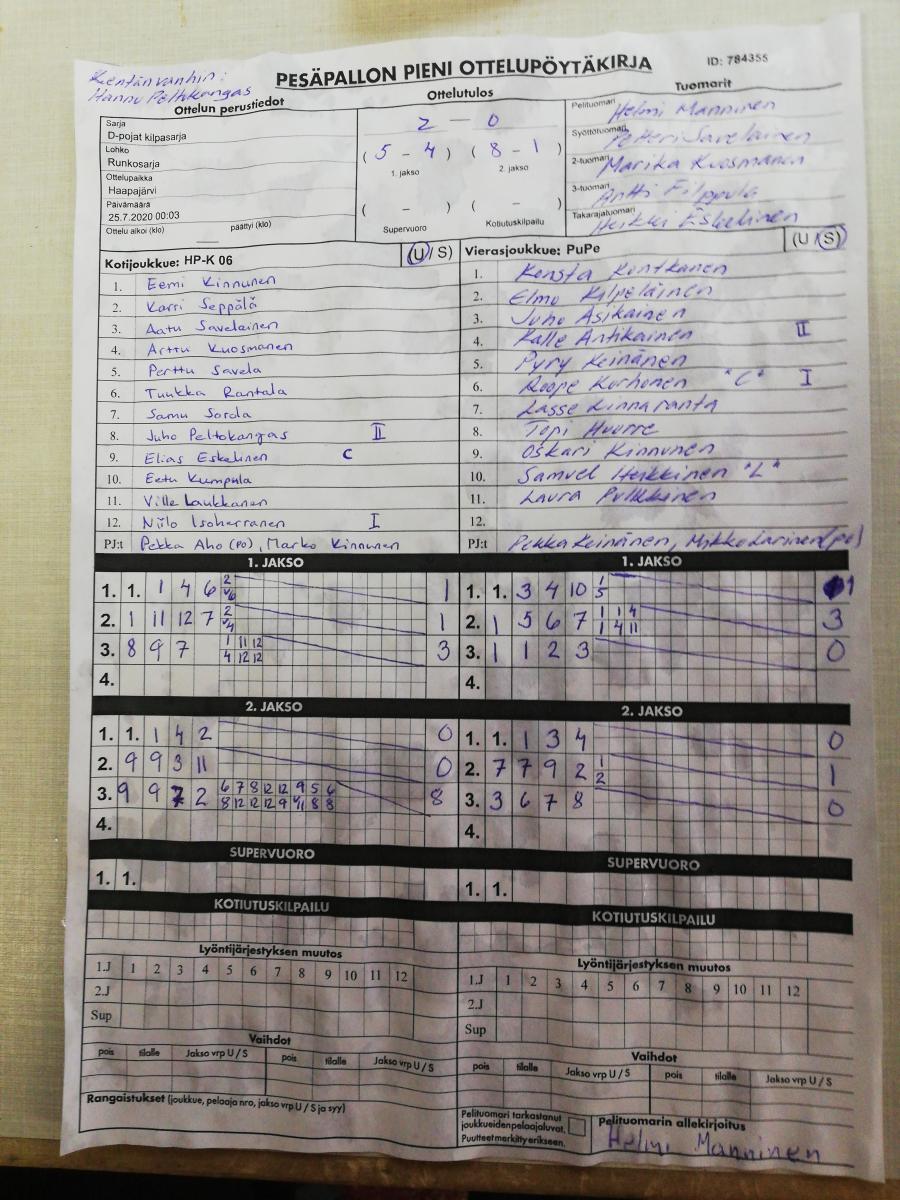 Kentänvanhin:
Hannu Peltokangas
PESÄPALLON PIENI OTTELUPÖYTÄKIRJA
ID: 784355
Ottelun perustiedot
Sarja
D-pojat kilpasarja
Lohko
Runkosarja
Ottelupaikka
Haapajärvi
Päivämäärä
25.7.2020 00:03
Ottelu alkoi (klo) päättyi (klo)
Ottelutulos
2 - 0
( 5 - 4 ) ( 8 - 1 )
1. jakso 2. jakso
( - ) ( - )
Supervuoro Kotiutuskilpailu
Tuomarit
Pelituomari Helmi Manninen
Syöttötuomari Petteri Savelainen
2-tuomari Marika Kuosmanen
3-tuomari Antti Filppula
Takarajatuomari Heikki Eskelinen
Kotijoukkue: HP-K 06 (U / S)
1. Eemi Kinnunen
2. Karri Seppälä
3. Aatu Savelainen
4. Arttu Kuosmanen
5. Perttu Savela
6. Tuukka Rantala
7. Samu Sorola
8. Juho Peltokangas II
9. Elias Eskelinen C
10. Eetu Kumpula
11. Ville Laukkanen
12. Niilo Isoherranen I
PJ:t Pekka Aho (po), Marko Kinnunen
Vierasjoukkue: PuPe (U / S)
1. Konsta Kontkanen
2. Elmo Kilpeläinen
3. Juho Asikainen
4. Kalle Antikainen II
5. Pyry Keinänen
6. Roope Korhonen "C" I
7. Lasse Linnaranta
8. Topi Huorre
9. Oskari Kinnunen
10. Samuel Heikkinen "L"
11. Laura Pulkkinen
12.
PJ:t Pekka Keinänen, Mikko Larinen (po)
1. JAKSO
1. 1. 1 4 6 2 1
V6
2. 1 11 12 7 2 1
V4
3. 8 9 7 1 11 12 3
4 12 12
4.
1. JAKSO
1. 1. 3 4 10 1 1
5
2. 1 5 6 7 1 1 4 3
1 4 11
3. 1 1 2 3 0
4.
2. JAKSO
1. 1. 1 4 2 0
2. 9 9 3 11 0
3. 9 9 7 2 6 7 8 12 12 9 5 6 8
8 12 12 12 9 V11 8 8
4.
2. JAKSO
1. 1. 1 3 4 0
2. 7 7 9 2 1 1
2
3. 3 6 7 8 0
4.
SUPERVUORO
1. 1.
SUPERVUORO
1. 1.
KOTIUTUSKILPAILU
KOTIUTUSKILPAILU
Lyöntijärjestyksen muutos
1.J 1 2 3 4 5 6 7 8 9 10 11 12
2.J
Sup
Lyöntijärjestyksen muutos
1.J 1 2 3 4 5 6 7 8 9 10 11 12
2.J
Sup
Vaihdot
pois tilalle Jakso vrp U / S pois tilalle Jakso vrp U / S
Vaihdot
pois tilalle Jakso vrp U / S pois tilalle Jakso vrp U / S
Rangaistukset (joukkue, pelaaja nro, jakso vrp U / S ja syy)
Pelituomari tarkastanut
joukkueiden pelaajaluvat.
Puutteet merkitty erikseen.
Pelituomarin allekirjoitus
Helmi Manninen